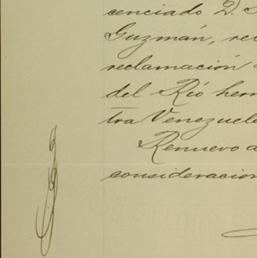 cenciado D.
Guzmán, re
reclamación
del Río herm
tra Venezuel
Renuevo a
consideracion